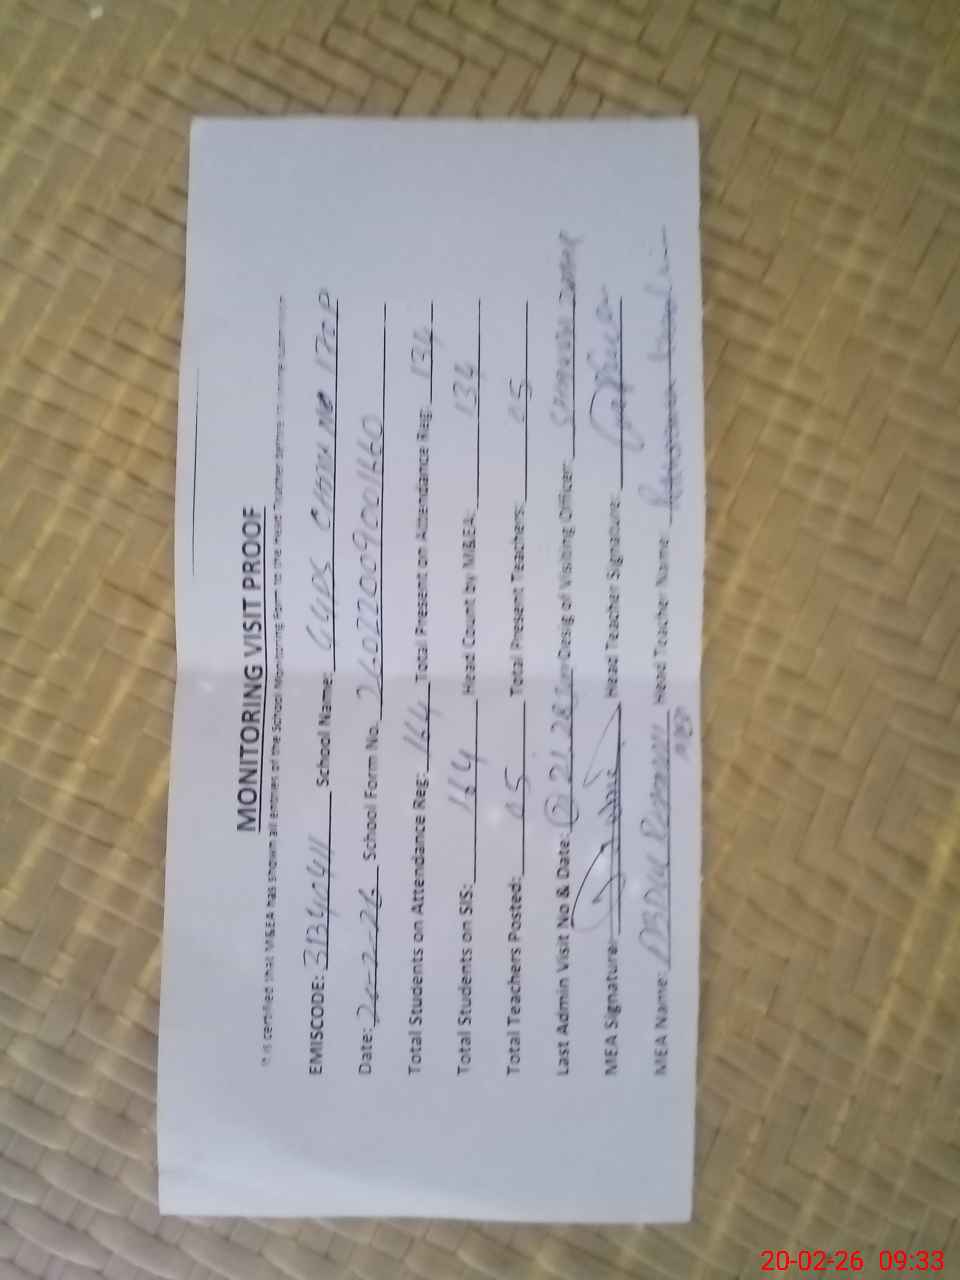 MONITORING VISIT PROOF
It is certified that M&EA has shown all entries of the School Monitoring Form to the Head Teacher before
EMISCODE: 31340411 School Name: GGPS CHAK NO 170 P
Date: 20-2-26 School Form No. 26022009001660
Total Students on Attendance Reg: 164 Total Present on Attendance Reg: 134
Total Students on SIS: 164 Head Count by M&EA: 134
Total Teachers Posted: 05 Total Present Teachers: 05
Last Admin Visit No & Date: Desig of Visiting Officer:
MEA Signature: Head Teacher Signature:
MEA Name: Head Teacher Name:
20-02-26 09:33